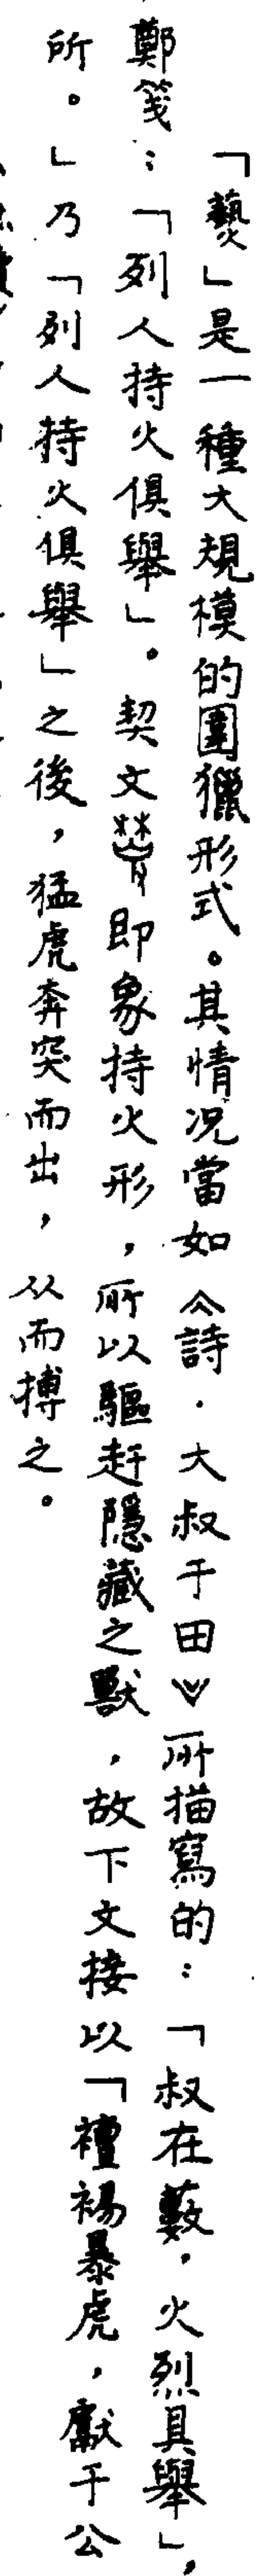 「爇」是一種大規模的圍獵形式。其情況當如《詩·大叔于田》所描寫的：「叔在藪，火烈具舉」，
鄭箋：「列人持火俱舉」。契文即象持火形，所以驅赶隱藏之獸，故下文接以「襢裼暴虎，獻于公
所。」乃「列人持火俱舉」之後，猛虎奔突而出，从而搏之。